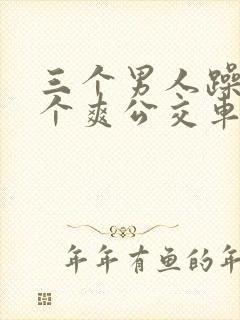 三个男人躁
个爽公交车
年年有鱼的年